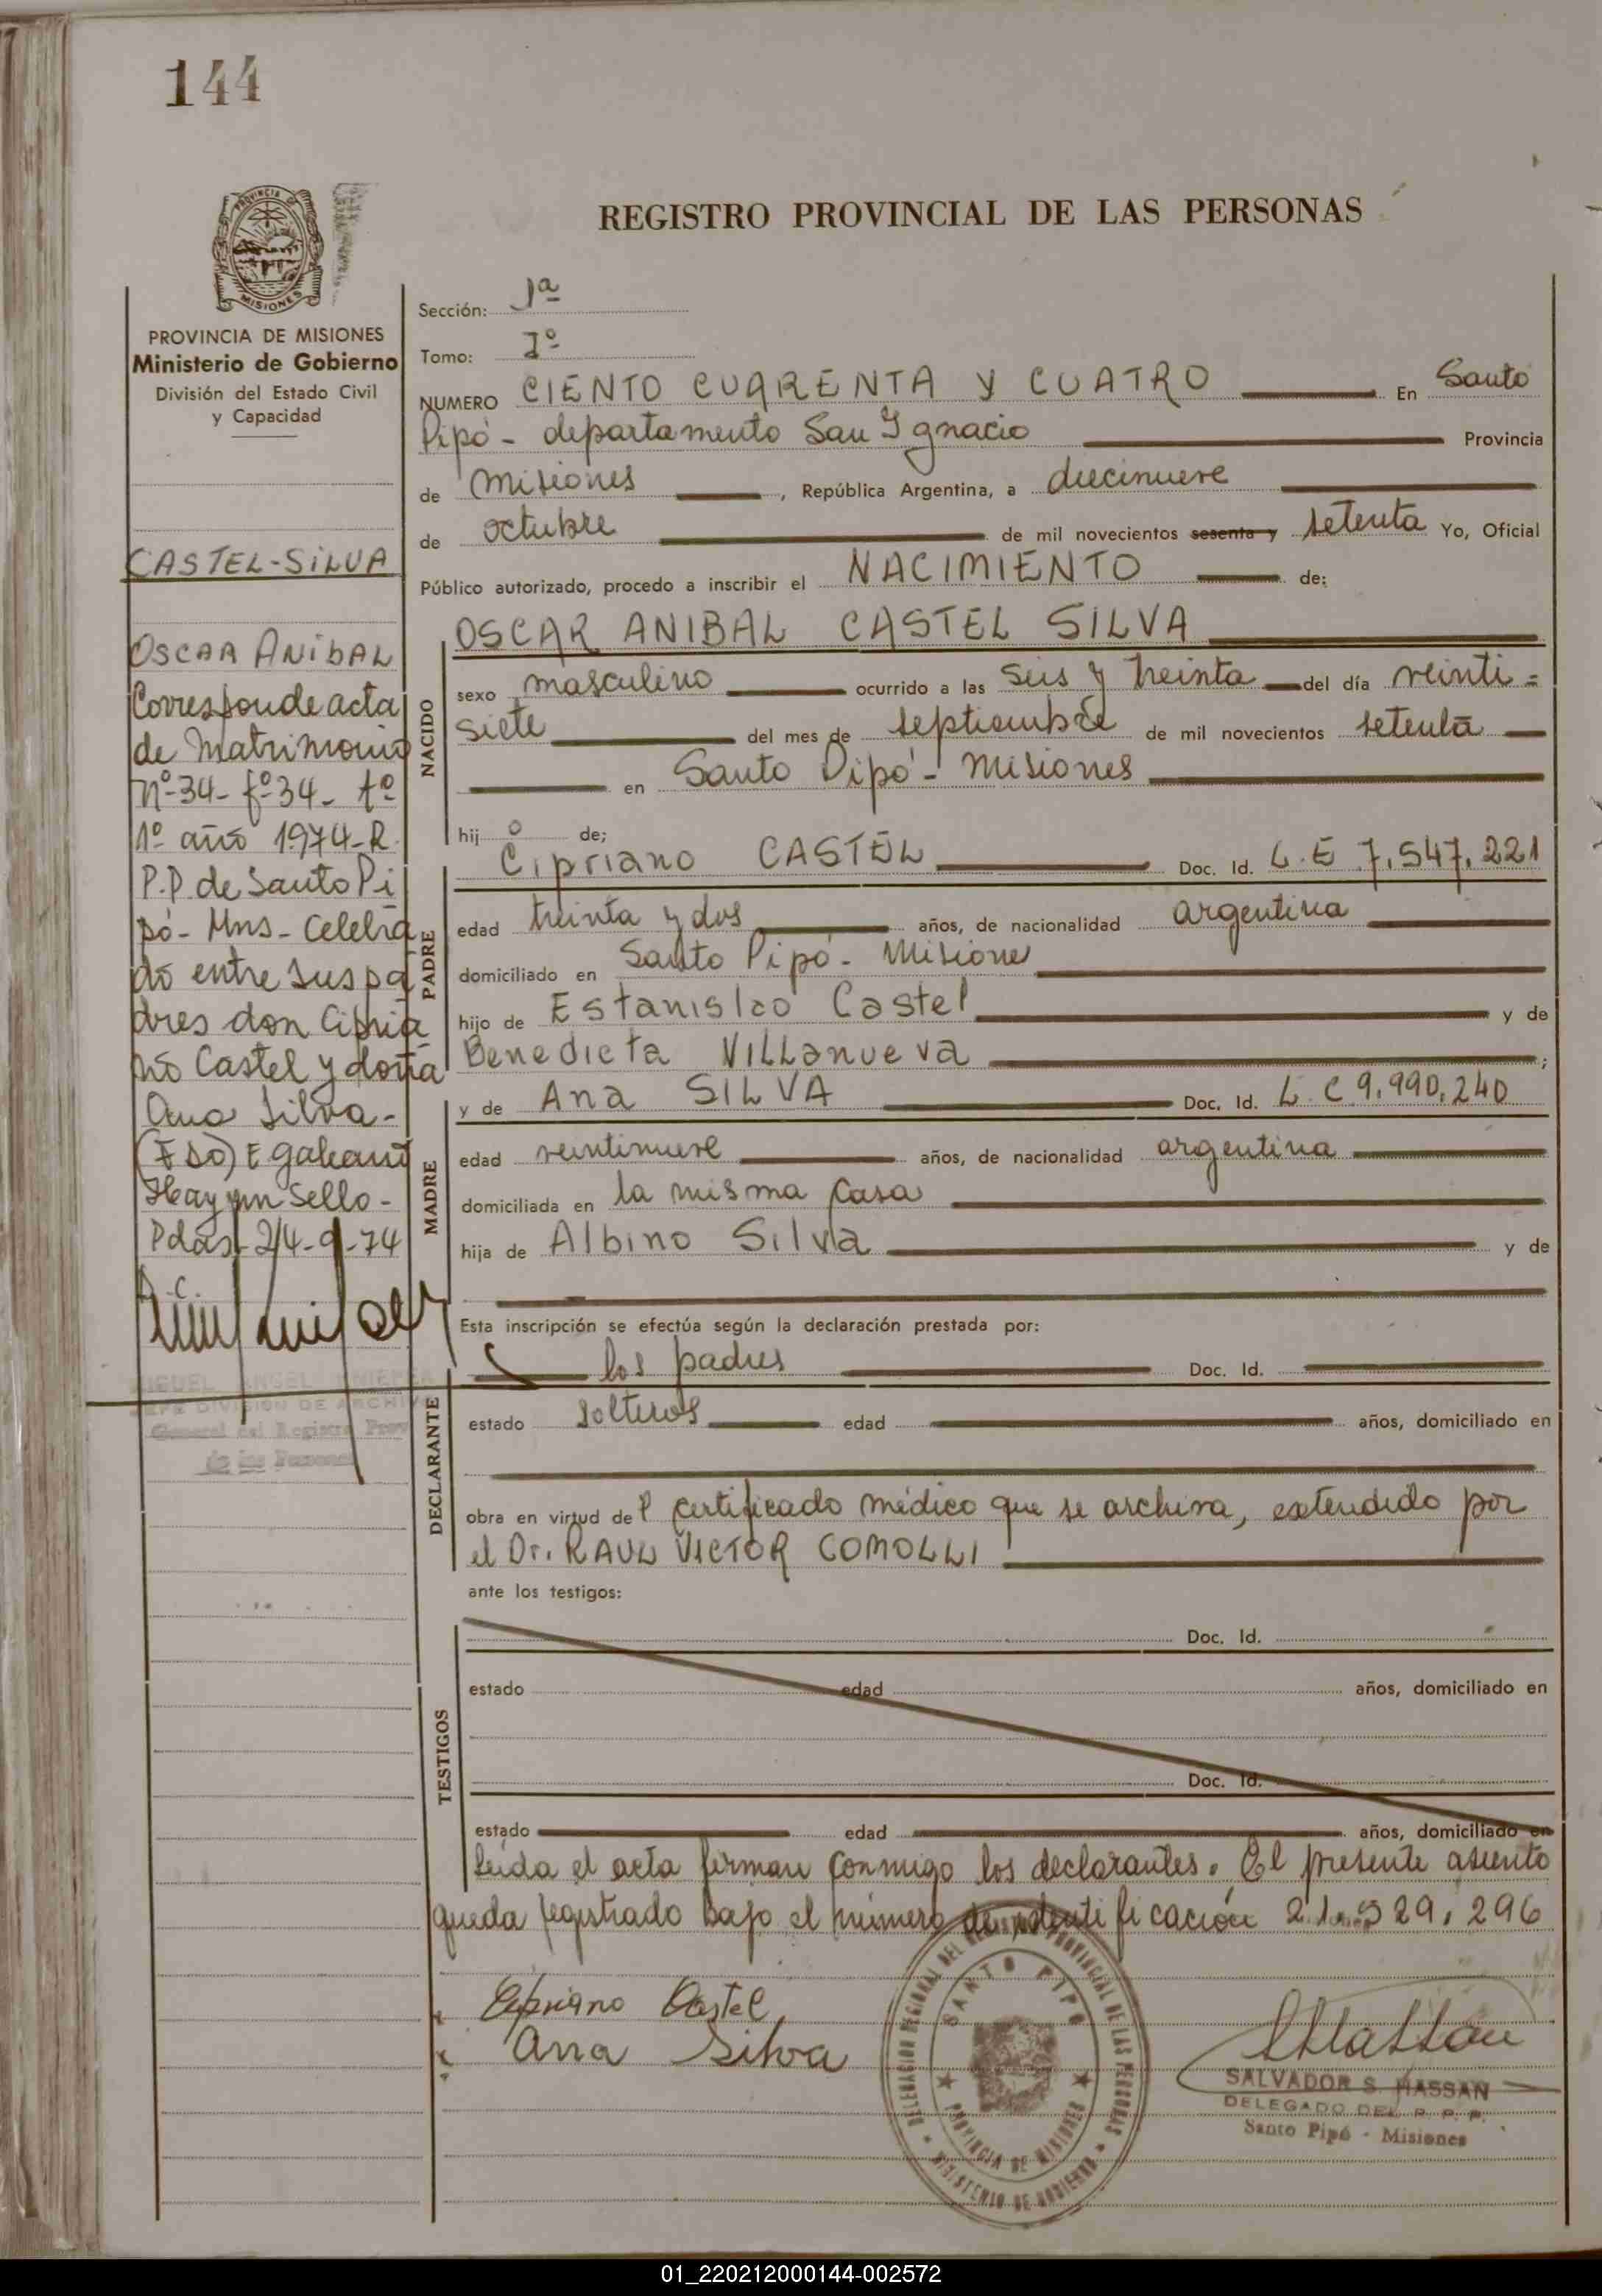 144
PROVINCIA
MISIONES
PROVINCIA DE MISIONES
Ministerio de Gobierno
División del Estado Civil
y Capacidad
CASTEL-SILVA
OSCAR ANIBAL
Corresponde acta
de Matrimonio
nº-34- fº-34- tº
1º año 1974-R.
P.P. de Santo Pi
pó- Mns- Celebra
do entre sus pa
dres don Cipria
no Castel y doña
Ana Silva-
(FDO) E Galeano
Hay un Sello-
Pdas- 24-9-74
A.C.
MIGUEL ANGEL
JEFE DIVISION DE ARCHIVO
General del Registro Prov
de las Personas
REGISTRO PROVINCIAL DE LAS PERSONAS
Sección: 1ª
Tomo: Iº
NUMERO CIENTO CUARENTA Y CUATRO En Santo
Pipó - departamento San Ignacio Provincia
de Misiones, República Argentina, a diecinueve
de octubre de mil novecientos sesenta y setenta Yo, Oficial
Público autorizado, procedo a inscribir el NACIMIENTO de:
NACIDO
OSCAR ANIBAL CASTEL SILVA
sexo masculino ocurrido a las seis y treinta del día veinti=
siete del mes de septiembre de mil novecientos setenta
en Santo Pipó - Misiones
hijo de;
PADRE
Cipriano CASTEL Doc. Id. L.E 7.547.221
edad treinta y dos años, de nacionalidad argentina
domiciliado en Santo Pipó - Misiones
hijo de Estanislao Castel y de
Benedicta VILLanueva;
MADRE
y de Ana SILVA Doc. Id. L.C 9.990.240
edad veintinueve años, de nacionalidad argentina
domiciliada en la misma casa
hija de Albino Silva y de
Esta inscripción se efectúa según la declaración prestada por:
DECLARANTE
los padres Doc. Id.
estado solteros edad años, domiciliado en
obra en virtud del certificado médico que se archiva, extendido por
el Dr. RAUL VICTOR COMOLLI
ante los testigos:
TESTIGOS
Doc. Id.
estado edad años, domiciliado en
Doc. Id.
estado edad años, domiciliado en
Leída el acta firman conmigo los declarantes. El presente asiento
queda registrado bajo el número de identificación 21.329.296
Cipriano Castel
Ana Silva
DELEGACION REGIONAL DEL REGISTRO PROVINCIAL DE LAS PERSONAS
SANTO PIPO
PROVINCIA DE MISIONES
MINISTERIO DE GOBIERNO
SALVADOR S. HASSAN
DELEGADO DEL R. P. P.
Santo Pipó - Misiones
01_220212000144-002572